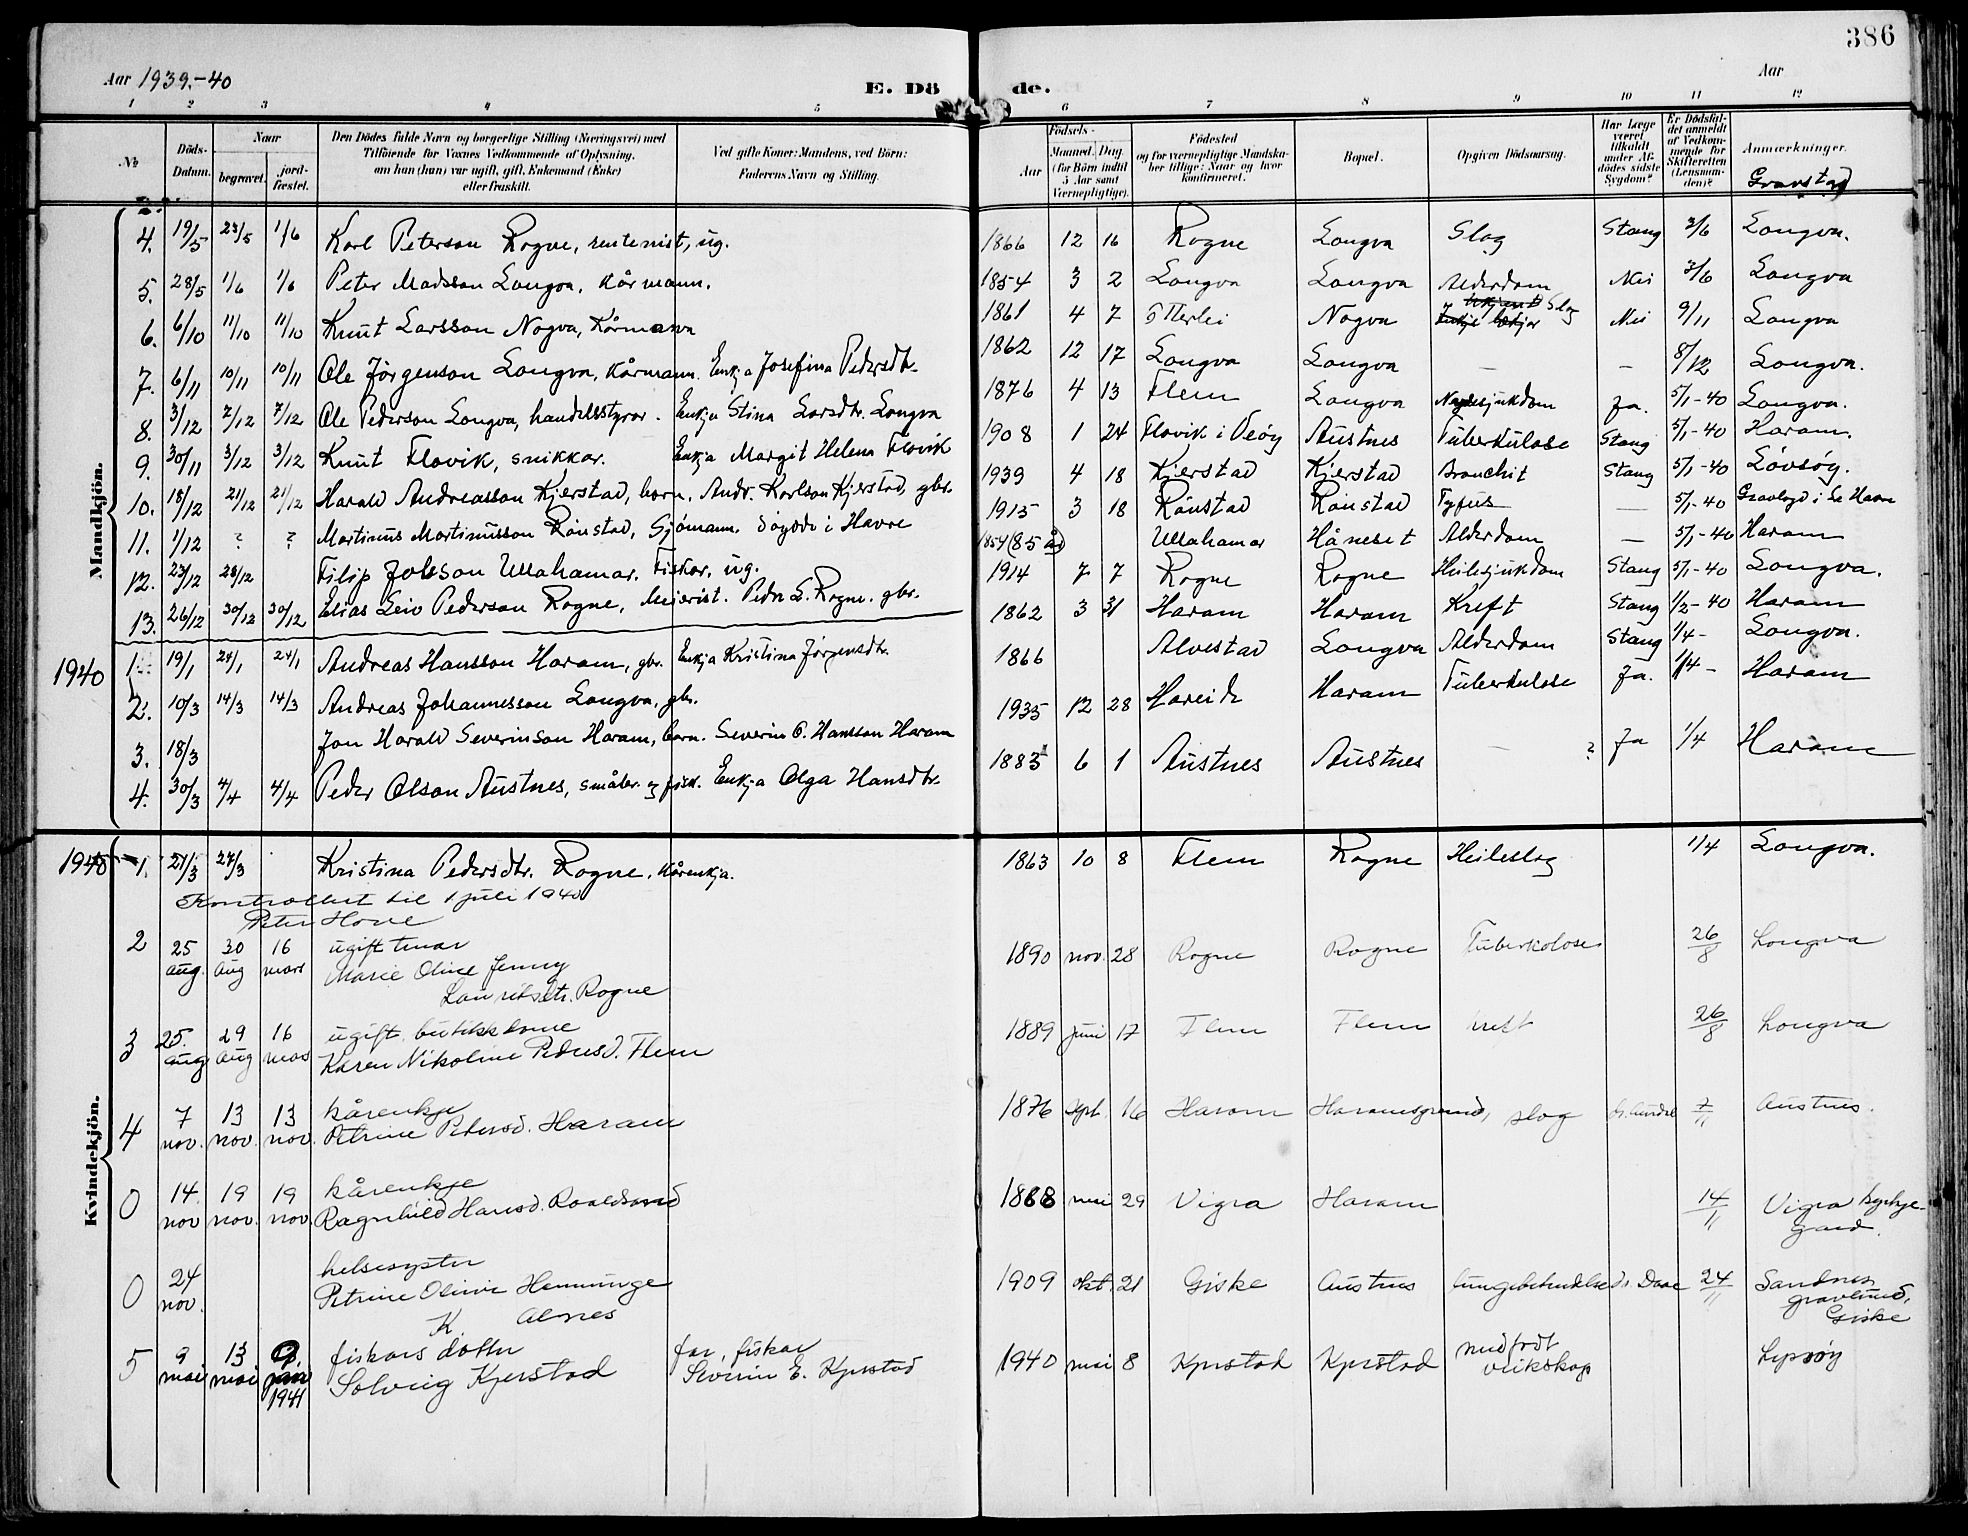 386
Aar 1939.-40
E. Dö
de.
Aar
1 2 3 4 5
6 7 8 9 10 11 12
No
Döds-Datum.
Naar
begravet.
jordfæstet.
Den Dödes fulde Navn og borgerlige Stilling (Næringsvei) med
Tilföiende for Voxnes Vedkommende af Oplysning,
om han (hun) var ugift, gift, Enkemand (Enke)
eller fraskilt.
Ved gifte Koner: Mandens, ved Börn:
Faderens Navn og Stilling.
Födsels-
Aar
Maaned. Dag
(for Börn indtil 5 Aar samt Værnepligtige).
Födested
og for værnepligtige Mandskaber tillige: Naar og hvor konfirmeret.
Bopæl.
Opgiven Dödsaarsag.
Har Læge været tilkaldt under Afdödes sidste Sygdom?
Er Dödsfaldet anmeldt af Vedkommende for Skifteretten (Lensmanden)?
Anmærkninger.
Gravstad
Mandkjön.
4. 19/5 23/5 1/6 Karl Peterson Rogne, rentenist, ug. 1866 12 16 Rogne Longva Slag Stang 3/6 Longva.
5. 28/5 1/6 1/6 Peter Madsson Longva, Kårmann. 1854 3 2 Longva Longva Alderdom Nei 3/6 Longva
6. 6/10 11/10 11/10 Knut Larsson Nogva, Kårmann 1861 4 7 Otterlei Nogva Slag Nei 9/11 Longva
7. 6/11 10/11 10/11 Ole Jörgenson Longva, Kårmann. Enkja Josefina Pedersdtr. 1862 12 17 Longva Longva — — 8/12 Longva.
8. 3/12 7/12 7/12 Ole Pederson Longva, handelsstyrar. Enkja Stina Larsdtr. Longva 1876 4 13 Flem Longva Ja. 5/1-40 Longva.
9. 30/11 3/12 3/12 Knut Flovik, snikkar. Enkja Margit Helena Flovik 1908 1 24 Flovik i Veöy Austnes Tuberkulose Stang 5/1-40 Haram.
10. 18/12 21/12 21/12 Harald Andreasson Kjerstad, born. Andr. Karlson Kjerstad, gbr. 1939 4 18 Kjerstad Kjerstad Bronchit Stang 5/1-40 Lövsöy.
11. 1/12 ? ? Martinus Martinusson Rönstad, Sjömann. Döydde i Havre 1915 3 18 Rönstad Rönstad Tyfus — 5/1-40 Gravlagd i Le Havre
12. 23/12 28/12 Filip Johsson Ullahamar. Fiskar, ug. 1854 (85 år) Ullahamar Håneset Alderdom — 5/1-40 Haram
13. 26/12 30/12 30/12 Elias Leiv Pederson Rogne, Meierist. Peder E. Rogne. gbr. 1914 7 7 Rogne Rogne Heilesjukdom Stang 5/1-40 Longva.
1940 1 19/1 24/1 24/1 Andreas Hansson Haram, gbr. Enkja Kristina Jörgensdtr. 1862 3 31 Haram Haram Kreft Stang 1/2-40 Haram
2. 10/3 14/3 14/3 Andreas Johannesson Longva, gbr. 1866 Alvestad Longva Alderdom Stang 1/4- Longva.
3. 18/3 Jon Harald Severinson Haram, barn. Severin O. Hansson Haram 1935 12 28 Hareide Haram Tuberkulose Ja. 1/4- Haram
4. 30/3 4/4 4/4 Peder Olson Austnes, småbr. og fisk. Enkja Olga Hansdtr. 1883 6 1 Austnes Austnes — ? Ja 1/4 Haram
Kvindekjön.
1940 1. 21/3 27/3 Kristina Pedersdtr. Rogne, Kårenkja. 1863 10 8 Flem Rogne Heileslag 1/4 Longva.
Kontrollert til 1 juli 1940
Peter Hove
2 25 aug. 30 aug 16 mars ugift tenar
Marie Oline Jenny
Lauritsdtr. Rogne 1890 nov. 28 Rogne Rogne Tuberkolose 26/8 Longva
3 25. aug 29 aug 16 mars ugift butikkdame
Karen Nikoline Pedersd. Flem 1889 juni 17 Flem Flem kreft 26/8 Longva
4 7 nov. 13 nov. 13 nov. kårenkje
Petrine Petersd. Haram 1876 sept. 16 Haram Haramsgrend, slag 7/11 Austnes.
0 14. nov 19 nov. 19 nov. kårenkje
Ragnhild Hansd. Roaldsand 1868 mai 29 Vigra Haram 14/11 Vigra kyrkjegard.
0 24 nov. helsesyster
Petrine Olivie Henninge
K. Alnes 1909 okt. 21 Giske Austnes lungebetendelse dr. Daae 24/11 Sandnes
gravlund,
Giske
5 9 mai 13 mai 9. juni 1941 fiskars dotter
Solveig Kjerstad far, fiskar
Severin E. Kjerstad 1940 mai 8 Kjerstad Kjerstad medfödt
veikskap